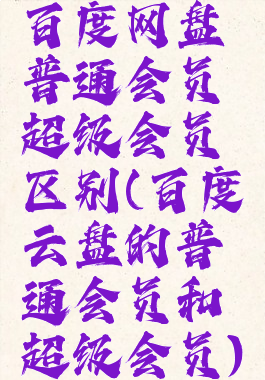 百度网盘
普通会员
超级会员
区别(百度
云盘的普
通会员和
超级会员)